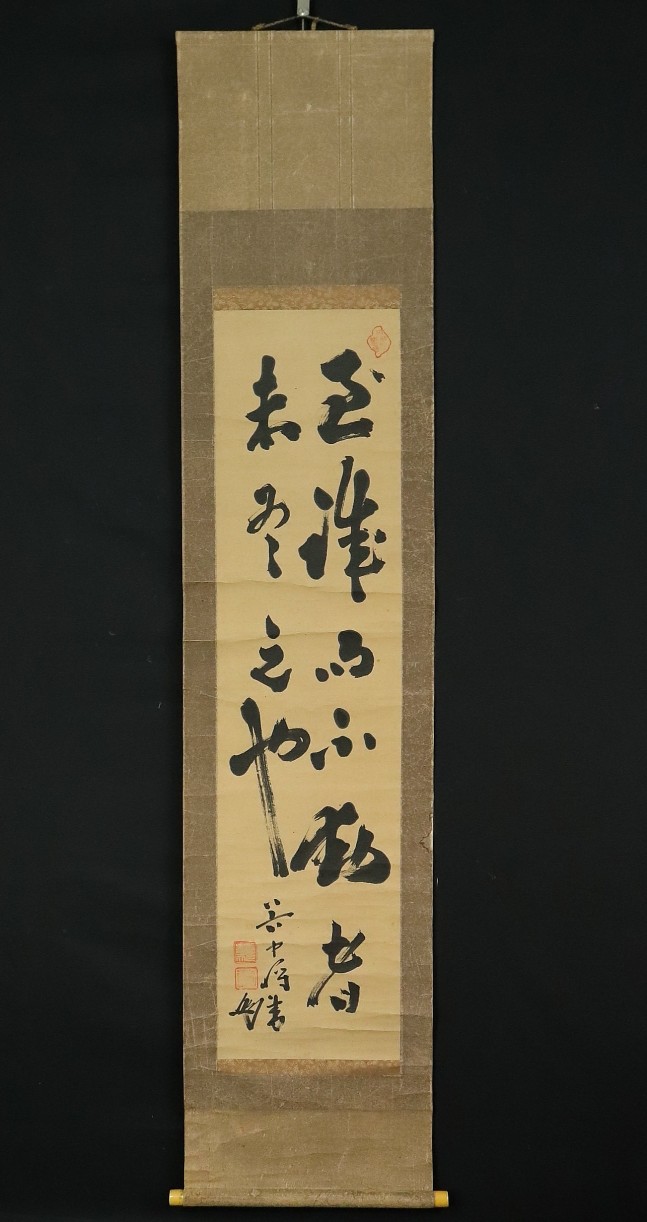 至誠而不動者
未有之也